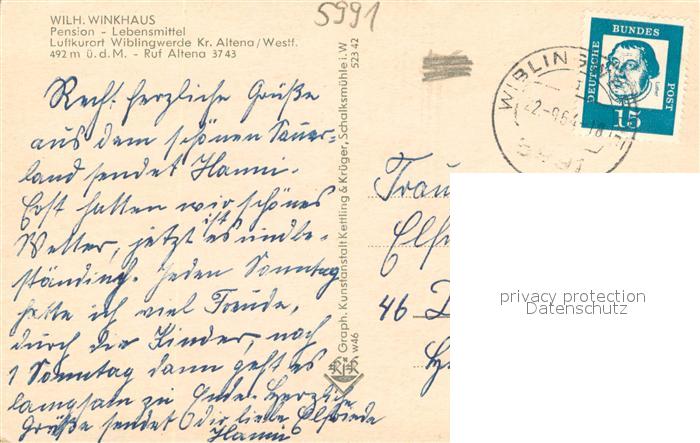 WILH. WINKHAUS
Pension - Lebensmittel
Luftkurort Wiblingwerde Kr. Altena/Westf.
492 m ü.d.M. - Ruf Altena 3743
5991
Recht herzliche Grüße
aus dem schönen Sauer-
land sendet Hanni.
Erst hatten wir schönes
Wetter, jetzt ist es unbe-
ständig. Jeden Sonntag
hatte ich viel Freude,
durch die Kinder, noch
1 Sonntag dann geht es
langsam zu Ende. Herzliche
Grüße sendet dir liebe Elfriede
Hanni
Graph. Kunstanstalt Kettling & Krüger, Schalksmühle i.W.
523 42
w46
WIBLIN
22.-9.64-18
DEUTSCHE
BUNDES
POST
Luther
15
Frau
Elf
46 D
privacy protection
Datenschutz